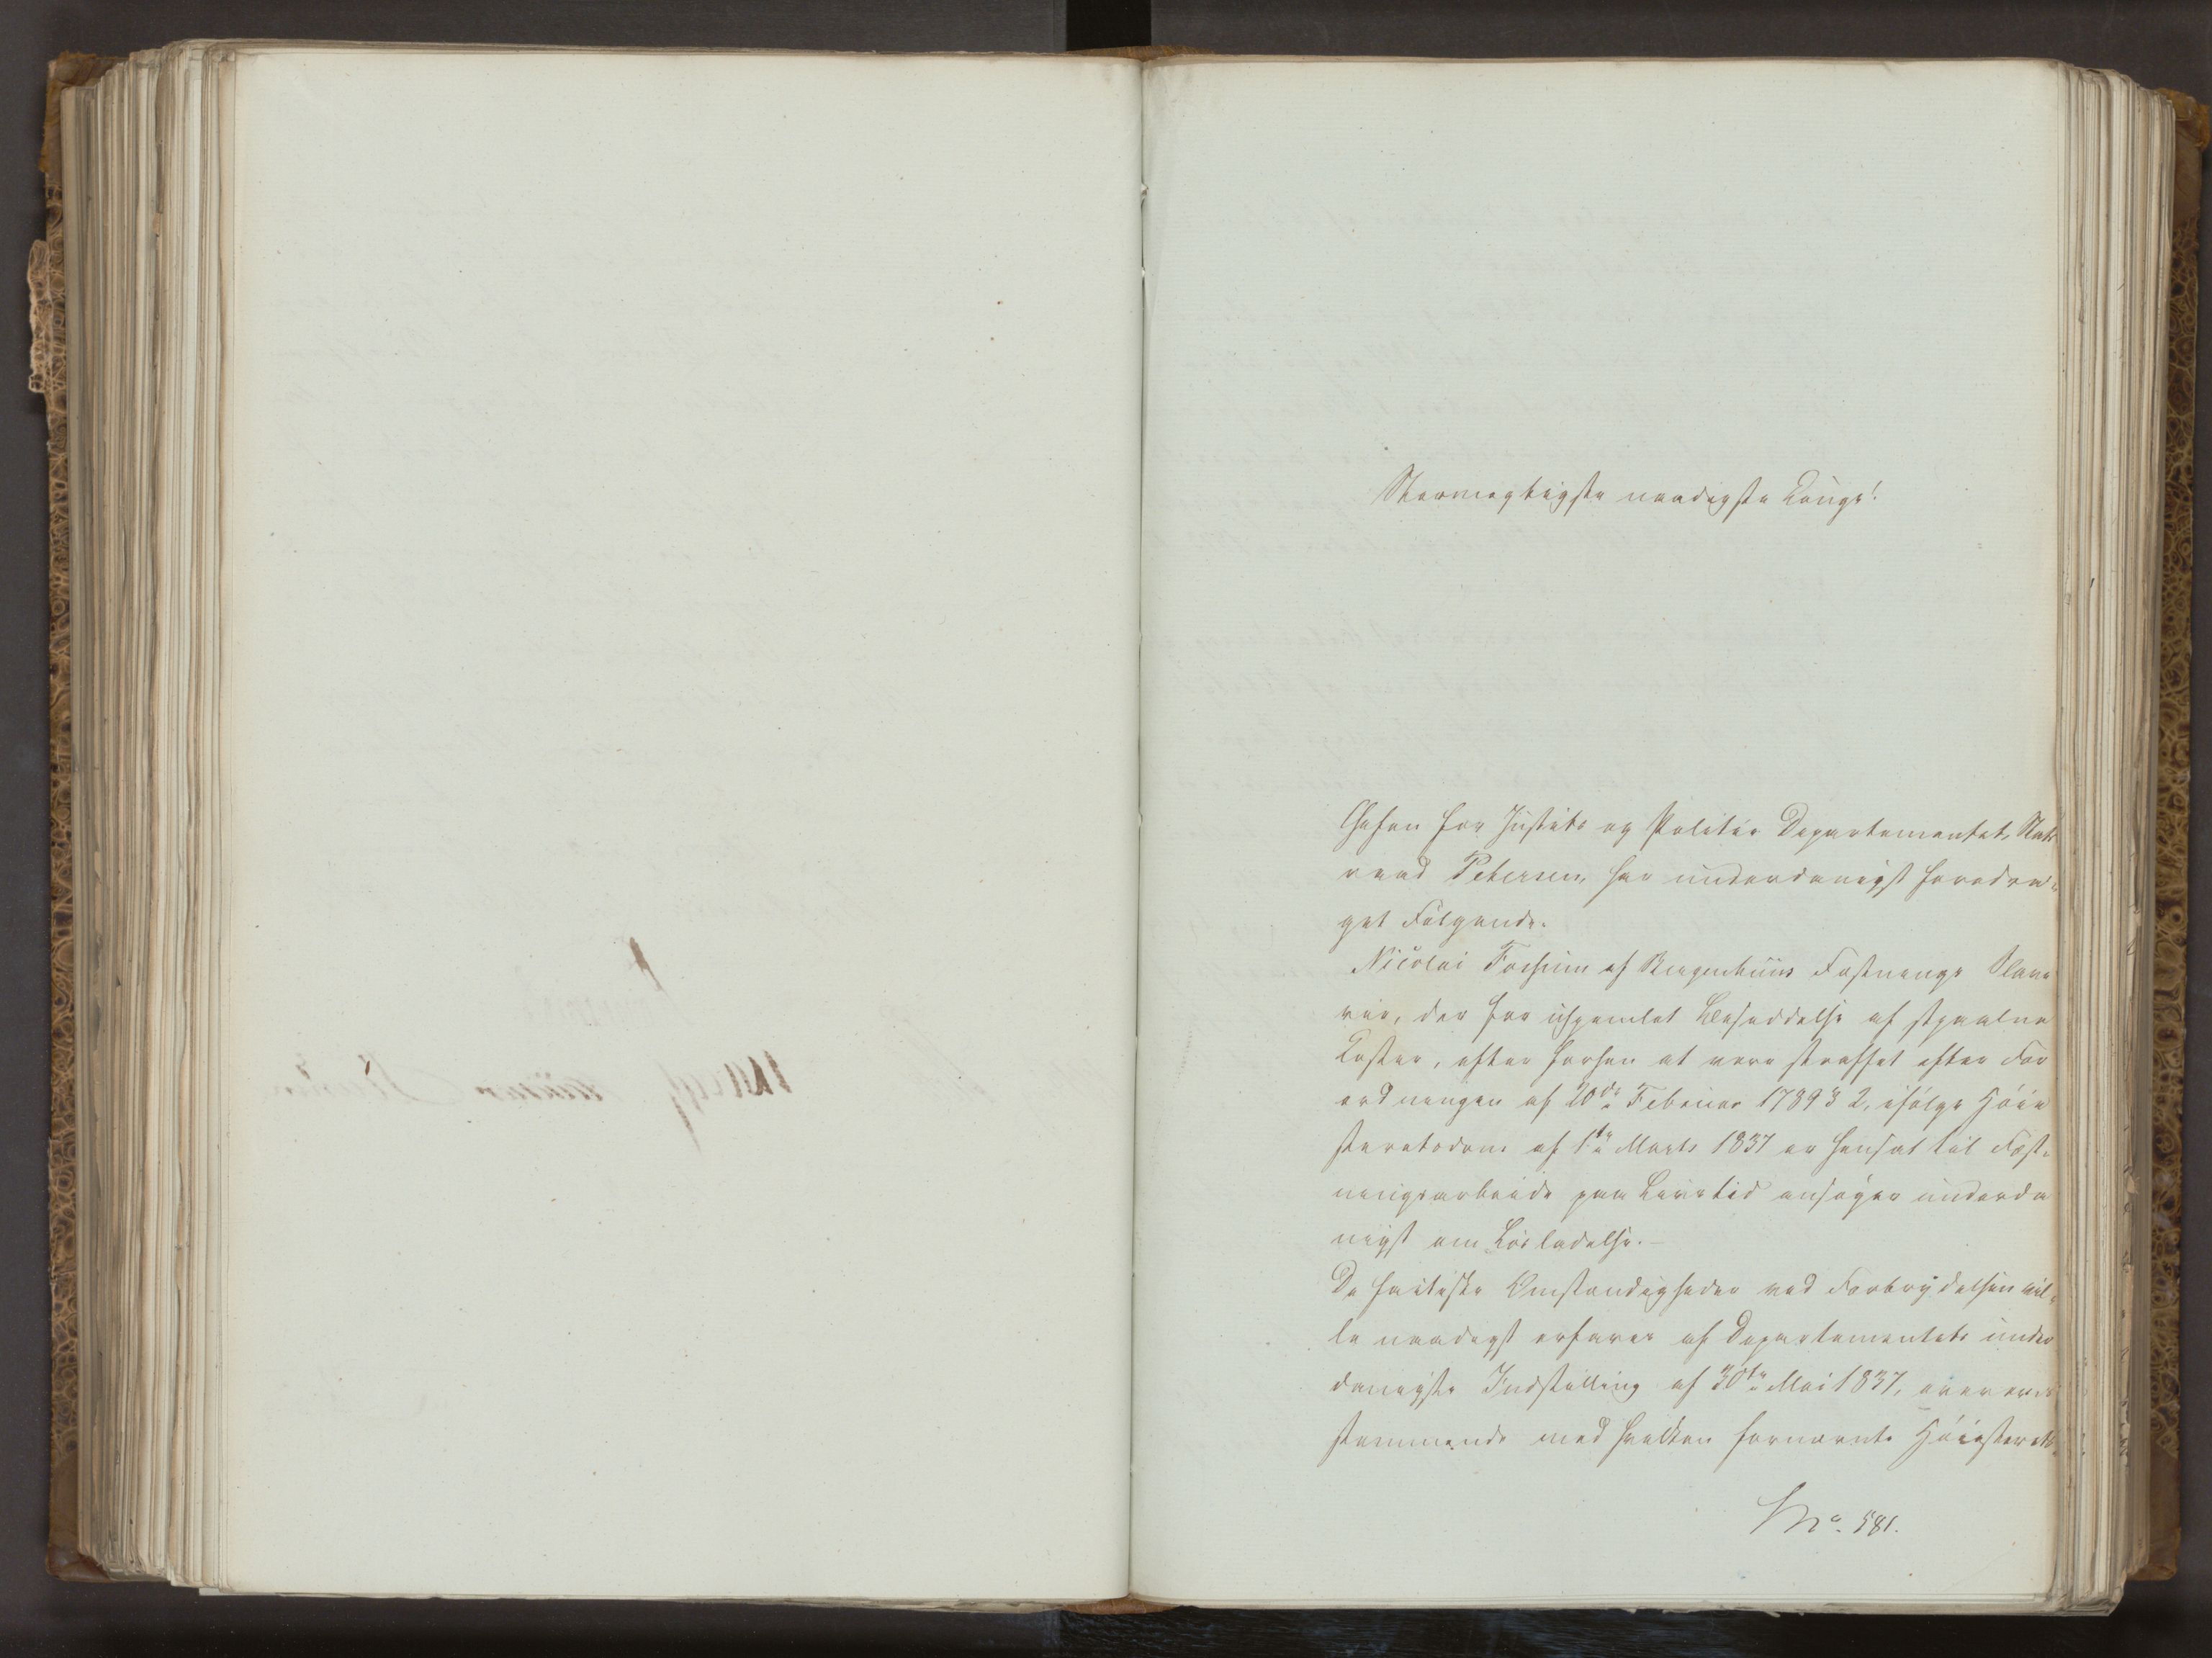 Stormægtigste naadigste Konge!
Chefen for Justits og Politie Departementet, Stats
raad Petersen, har underdanigst foredra-
get Følgende.
Nicolai Fossum af Bergenhuus Fæstnings Slave
rie, der for uhjemlet Besiddelse af stjaalne
Koster, efter forhen at være straffet efter For
ordningen af 20de Februar 1789 § 2, ifølge Høie
steretsdom af 1ste Marts 1837 er hensat til Fæst-
ningsarbeide paa Livstid ansøger underda
nigst om Løsladelse.-
De factiske Omstændigheder ved Forbrydelsen vil-
le naadigst erfares af Departementets under
danigste Indstilling af 30te Mai 1837, overeens
stemmende med hvilken fornævnte Høiesterets-
No. 581.